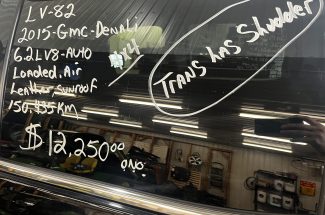 LV-82
2015-GMC-DENALI
6.2LV8-AUTO
4x4
Loaded, Air
Leather, Sunroof
150,435 Km
$12,250⁰⁰ ONO
TRANS has Shudder